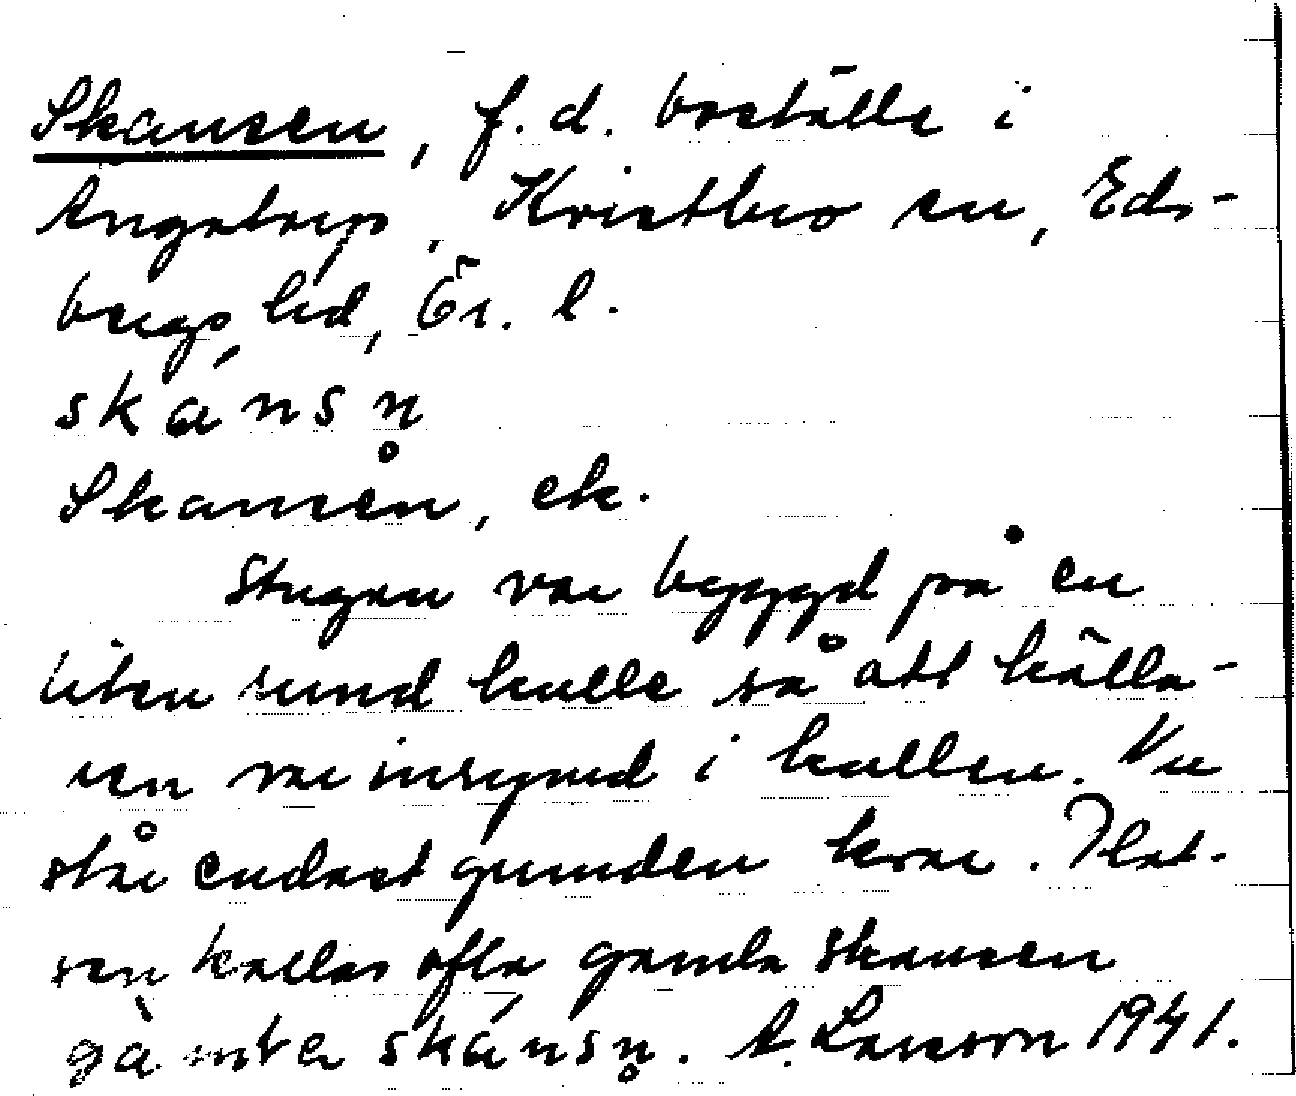 Skansen, f.d. boställe i
Ängatorp, Kvistbro sn, Eds-
bergs hd, Ör. l.
skánsn̥
Skansån, ek.
Stugan var byggd på en
liten rund kulle så att källa-
ren var inrymd i kullen. Nu
står endast grunden kvar. Plat-
sen kallas ofta gamla skansen
gàmɬa skánsn̥. A. Larsson 1941.